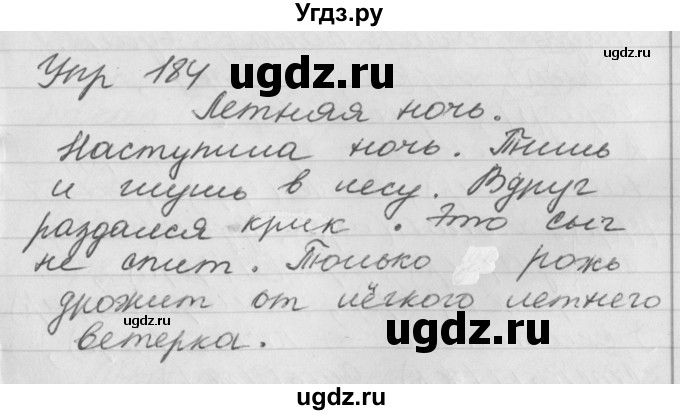 Угдз.ру
ugdz.ru
Упр 184 ugdz.ru
Летняя ночь.
Наступила ночь. Тишь
и глушь в лесу. Вдруг
раздался крик. Это сыч
ugdz.ru
не спит. Только рожь
дрожит от лёгкого летнего
ugdz.ru ugdz.ru
ветерка.
ugdz.ru